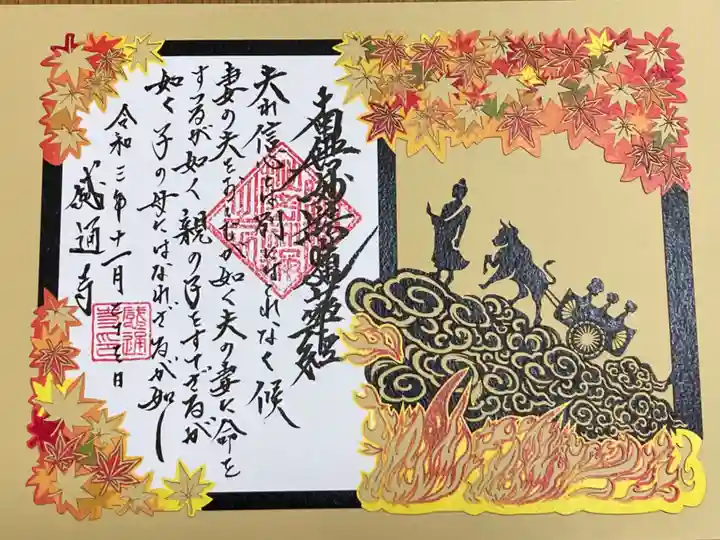 南無妙法蓮華経
夫れ信心とは別にはこれなく候
妻の夫をおしむが如く夫の妻に命を
するが如く 親の子をすてざるが
如く 子の母にはなれざるが如し
令和三年十一月 日
感通寺